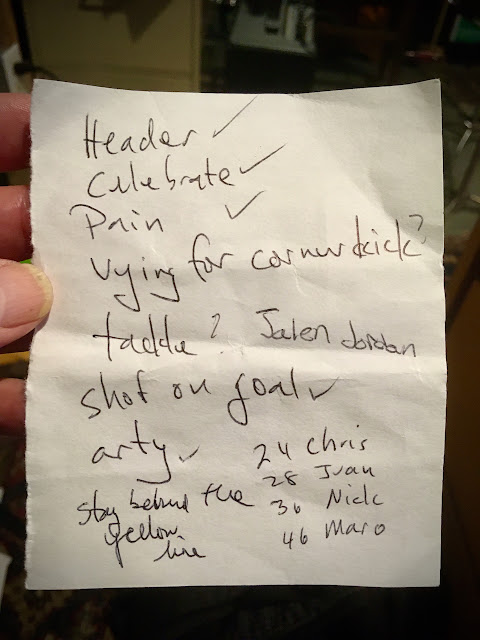 Header ✓
Celebrate ✓
Pain ✓
Vying for corner kick?
tackle? Jalen Jordan
shot on goal ✓
arty ✓
24 Chris
28 Juan
stay behind the
36 Nick
yellow
46 Maro
line